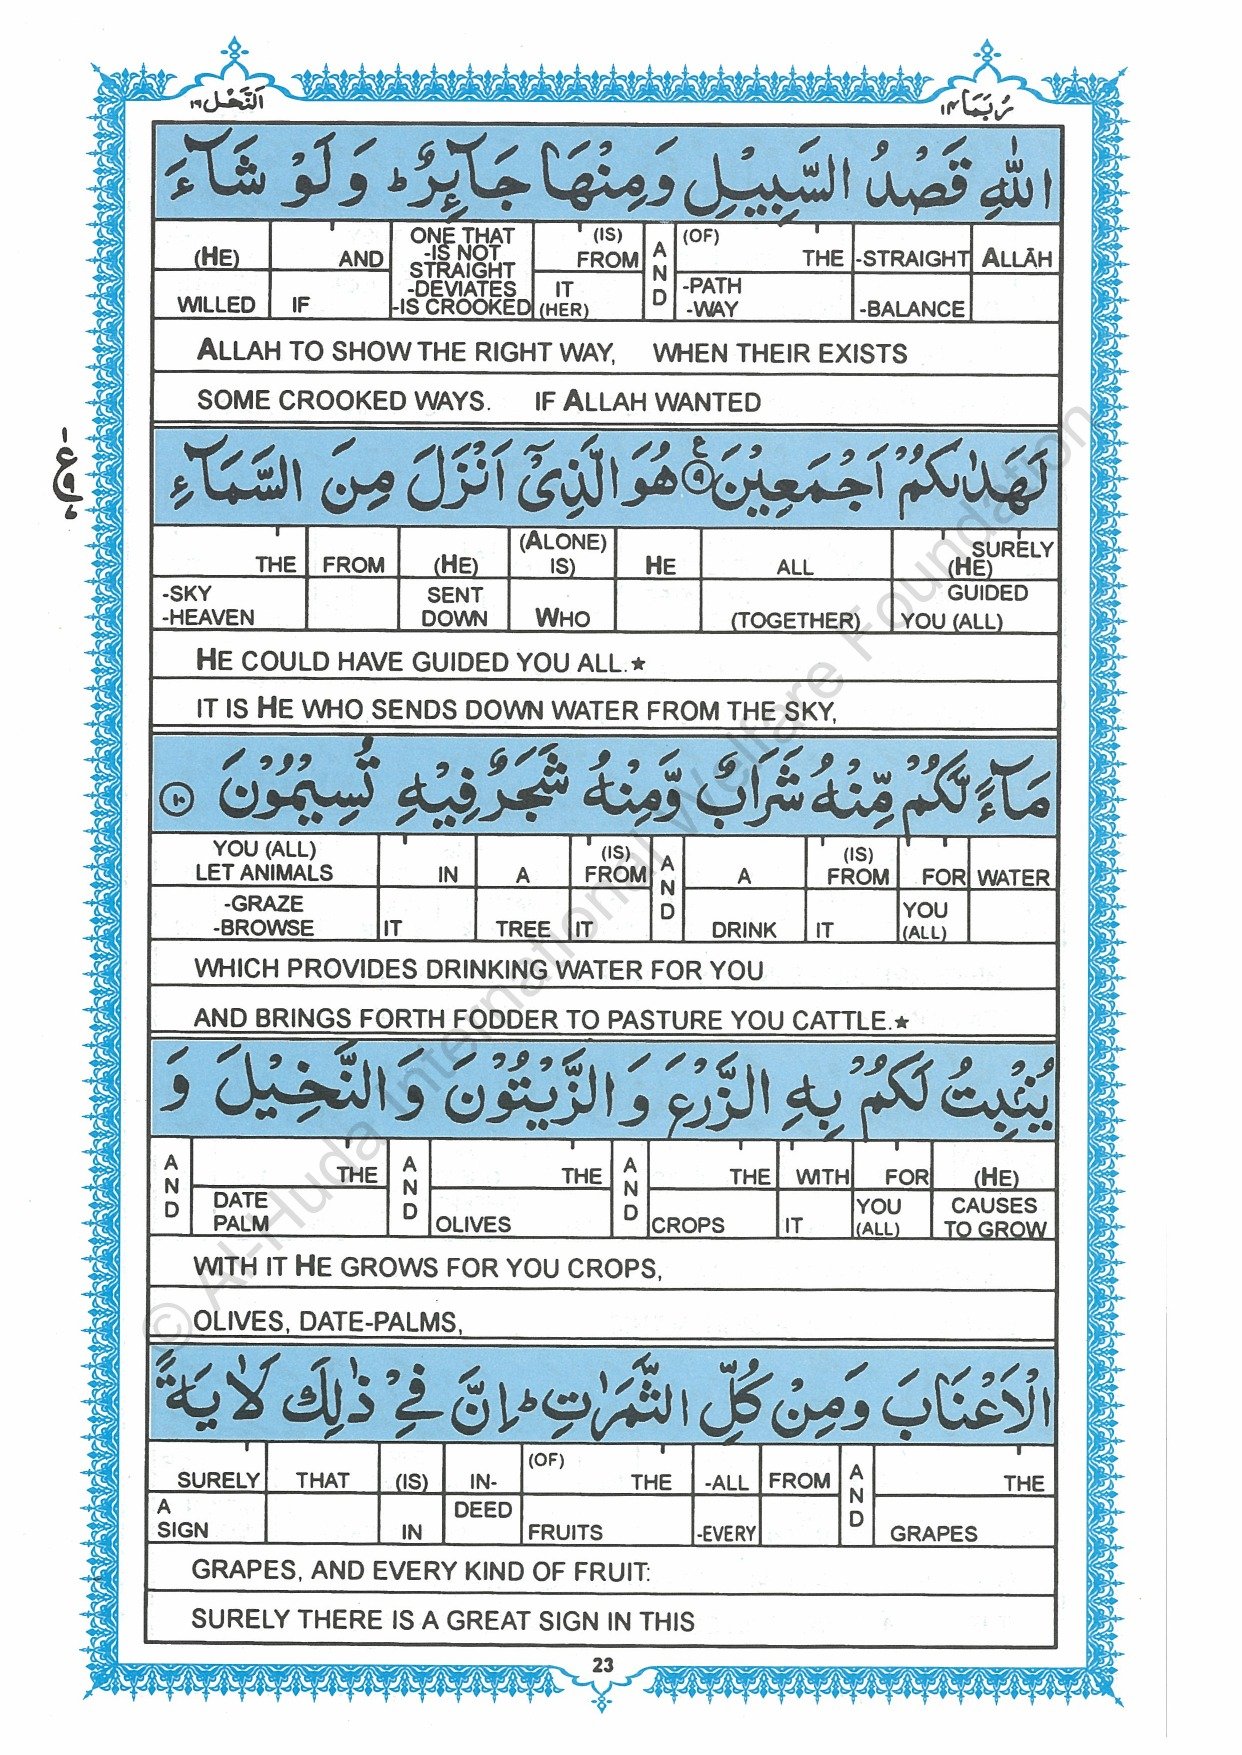 اَلنَّحْل ١٦
رُبَمَا ١٤
اللّٰهِ قَصْدُ السَّبِيْلِ وَمِنْهَا جَآئِرٌ ؕ وَلَوْ شَآءَ
(HE) AND ONE THAT (IS) A (OF) THE -STRAIGHT ALLĀH
-IS NOT FROM N
STRAIGHT D
WILLED IF -DEVIATES IT -PATH -BALANCE
-IS CROOKED (HER) -WAY
ALLAH TO SHOW THE RIGHT WAY, WHEN THEIR EXISTS
SOME CROOKED WAYS. IF ALLAH WANTED
لَهَدٰىكُمْ اَجْمَعِيْنَ ۹ هُوَ الَّذِيْۤ اَنْزَلَ مِنَ السَّمَآءِ
ع ۹
THE FROM (HE) (ALONE) IS) HE ALL SURELY (HE)
-SKY SENT WHO (TOGETHER) GUIDED
-HEAVEN DOWN YOU (ALL)
HE COULD HAVE GUIDED YOU ALL.★
IT IS HE WHO SENDS DOWN WATER FROM THE SKY,
مَآءً لَّكُمْ مِّنْهُ شَرَابٌ وَّمِنْهُ شَجَرٌ فِيْهِ تُسِيْمُوْنَ ١٠
YOU (ALL) (IS) A (IS)
LET ANIMALS IN A FROM N A FROM FOR WATER
-GRAZE D YOU
-BROWSE IT TREE IT DRINK IT (ALL)
WHICH PROVIDES DRINKING WATER FOR YOU
AND BRINGS FORTH FODDER TO PASTURE YOU CATTLE.★
يُنْۢبِتُ لَكُمْ بِهِ الزَّرْعَ وَ الزَّيْتُوْنَ وَ النَّخِيْلَ وَ
AND THE AND THE AND THE WITH FOR (HE)
DATE YOU CAUSES
PALM OLIVES CROPS IT (ALL) TO GROW
WITH IT HE GROWS FOR YOU CROPS,
OLIVES, DATE-PALMS,
الْاَعْنَابَ وَمِنْ كُلِّ الثَّمَرٰتِ ؕ اِنَّ فِيْ ذٰلِكَ لَاٰيَةً
(OF)
SURELY THAT (IS) IN- THE -ALL FROM AND THE
A DEED
SIGN IN FRUITS -EVERY GRAPES
GRAPES, AND EVERY KIND OF FRUIT:
SURELY THERE IS A GREAT SIGN IN THIS
23
© Al-Huda International Welfare Foundation